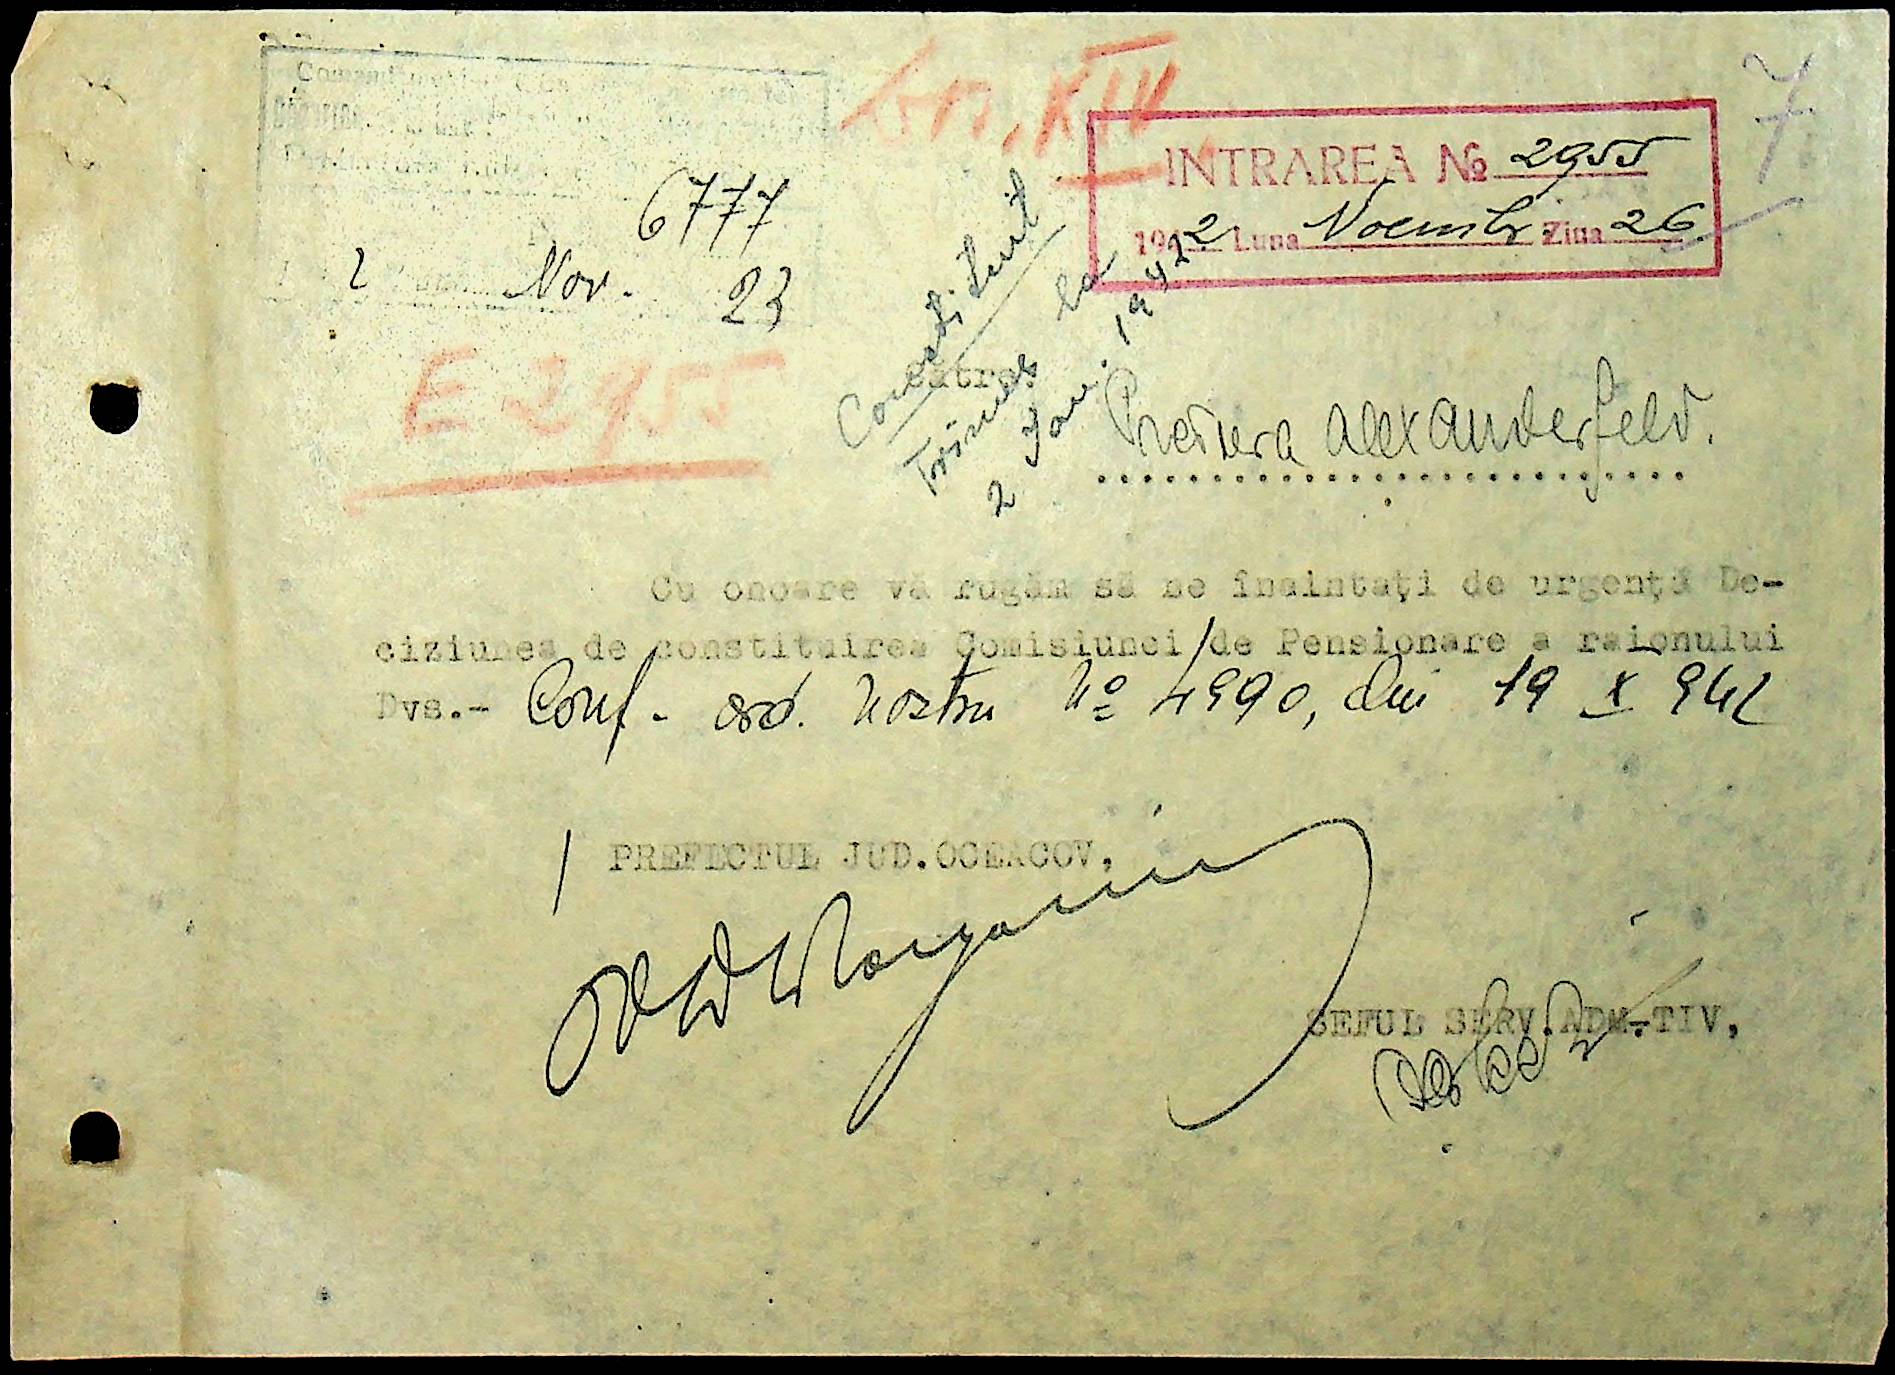 7
XIV
INTRAREA № 2955
1942 Luna Noembr Ziua 26
6777
2 Nov. 23
E 2955
Constituit
Trimes la
2 Ian. 1942
Către,
Pretura Alexanderfeld.
Cu onoare vă rugăm să ne înaintați de urgență De-
ciziunea de constituirea Comisiunei de Pensionare a raionului
Dvs.- Conf. ord. nostru No 4990, din 19 X 942
PREFECTUL JUD.OCEACOV,
SEFUL SERV.ADM-TIV,